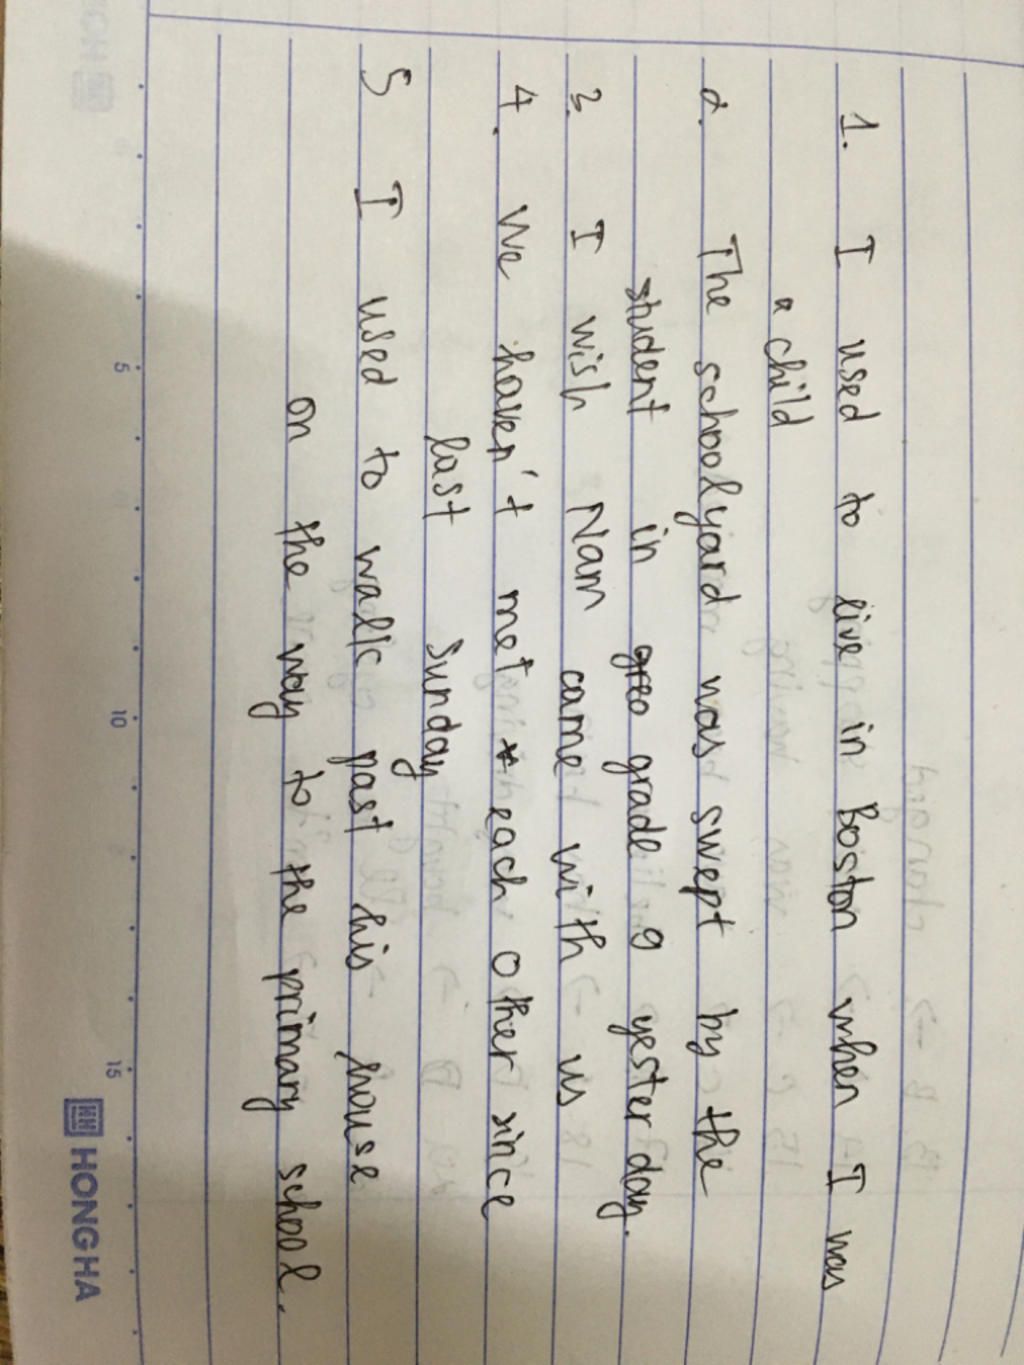 1. I used to live in Boston when I was
a child
2. The schoolyard was swept by the
student in grade 9 yesterday.
3. I wish Nam came with us
4. We haven't met each other since
last Sunday
5 I used to walk past his house
on the way to the primary school.
5 10 15 HONG HA